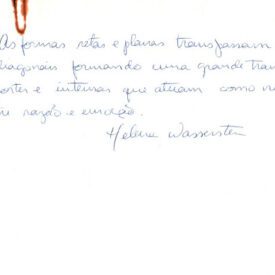 As formas retas e planas transpassam
diagonais formando uma grande tra
fortes e intensas que atuam como
razão e emoção.
Helena Wassersten